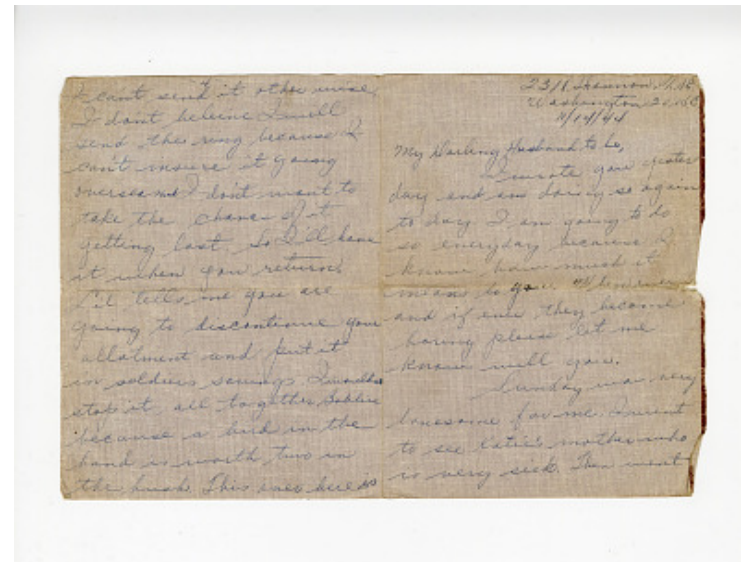 I can't send it other wise.
I dont believe I will
send the ring because I
can't insure it going
overseas and I don't want to
take the chance of it
getting lost. So I'll have
it when you return.
tells me you are
going to discontinue your
allotment and put it
in soldiers savings. I
stop it all together
because a bird in the
hand is worth two in
the bush. This
23 Shannon
Washington 20
My Darling Husband to be,
I wrote you yester
day and am doing so again
to day. I am going to do
so everyday because I
know how much it
means to you.
and if ever they become
boring please let me
know will you.
Sunday was very
lonesome for me. I went
to see mother who
is very sick. Then went